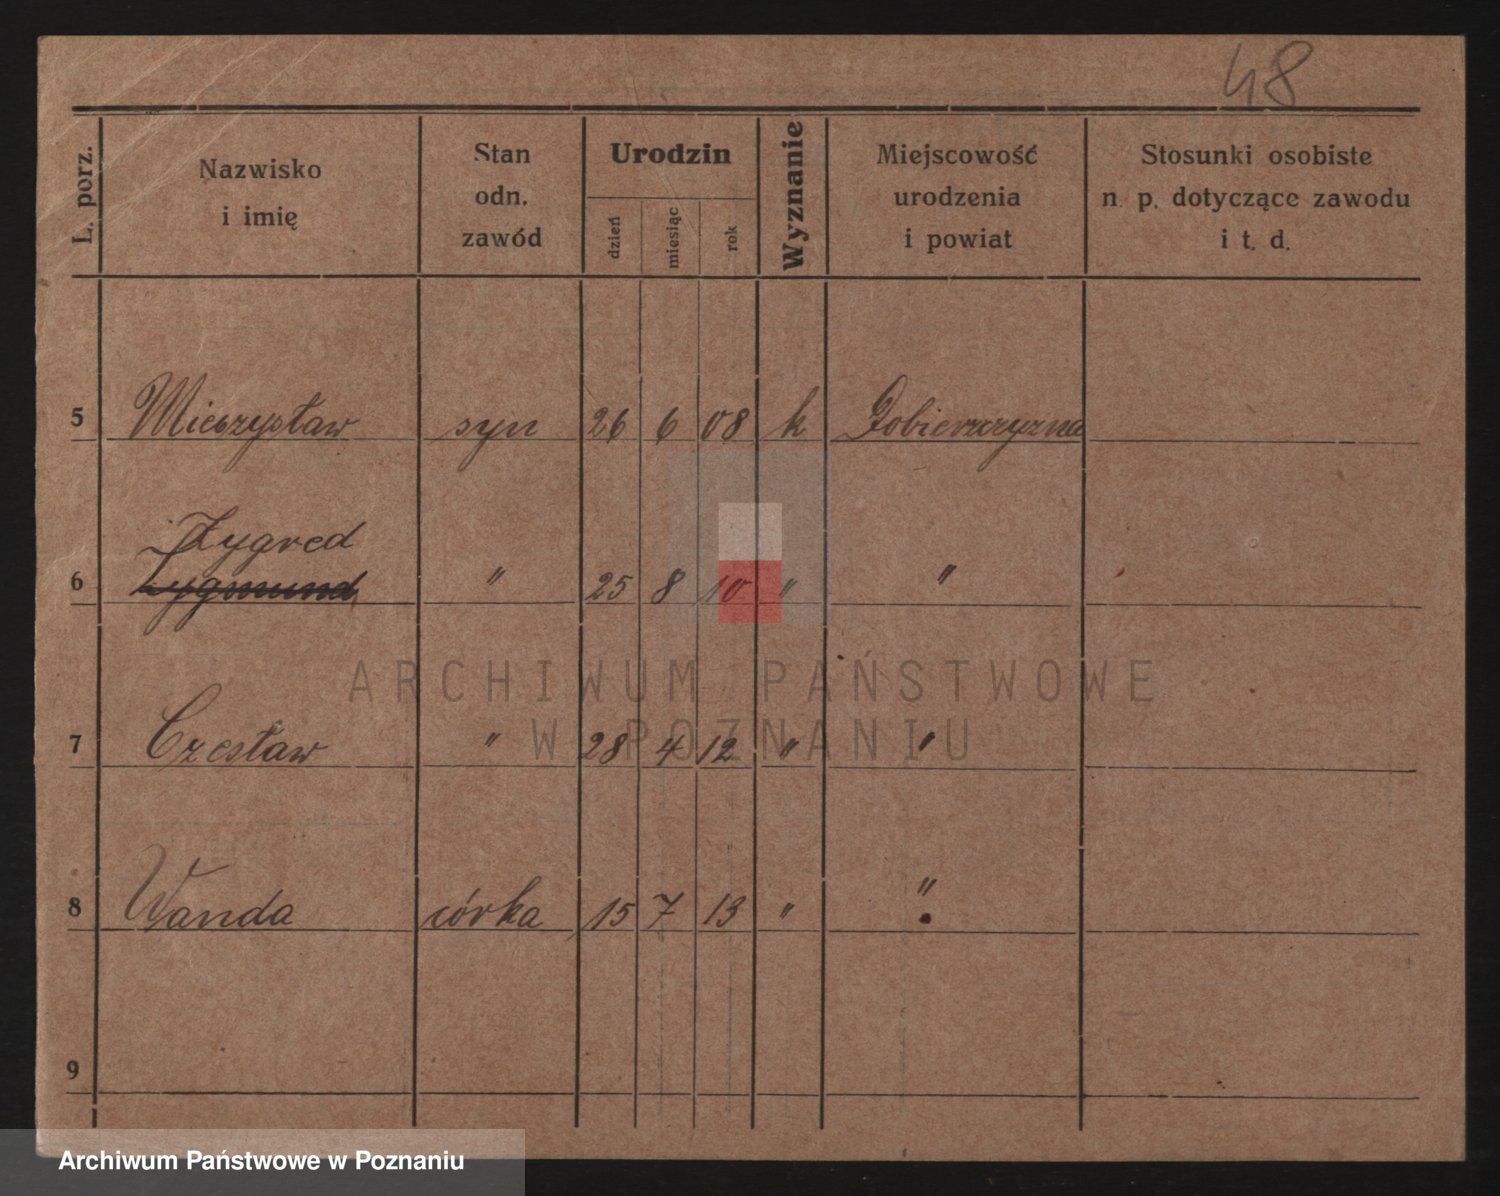 48
L. porz.
Nazwisko
i imię
Stan
odn.
zawód
Urodzin
dzień
miesiąc
rok
Wyznanie
Miejscowość
urodzenia
i powiat
Stosunki osobiste
n. p. dotyczące zawodu
i t. d.
5 Mieczysław syn 26 6 08 k Dobierzyzna
Zygred
6 Zygmund " 25 8 10 " "
ARCHIWUM PAŃSTWOWE
W POZNANIU
7 Czesław " 28 4 12 " "
8 Wanda córka 15 7 13 " "
9
Archiwum Państwowe w Poznaniu